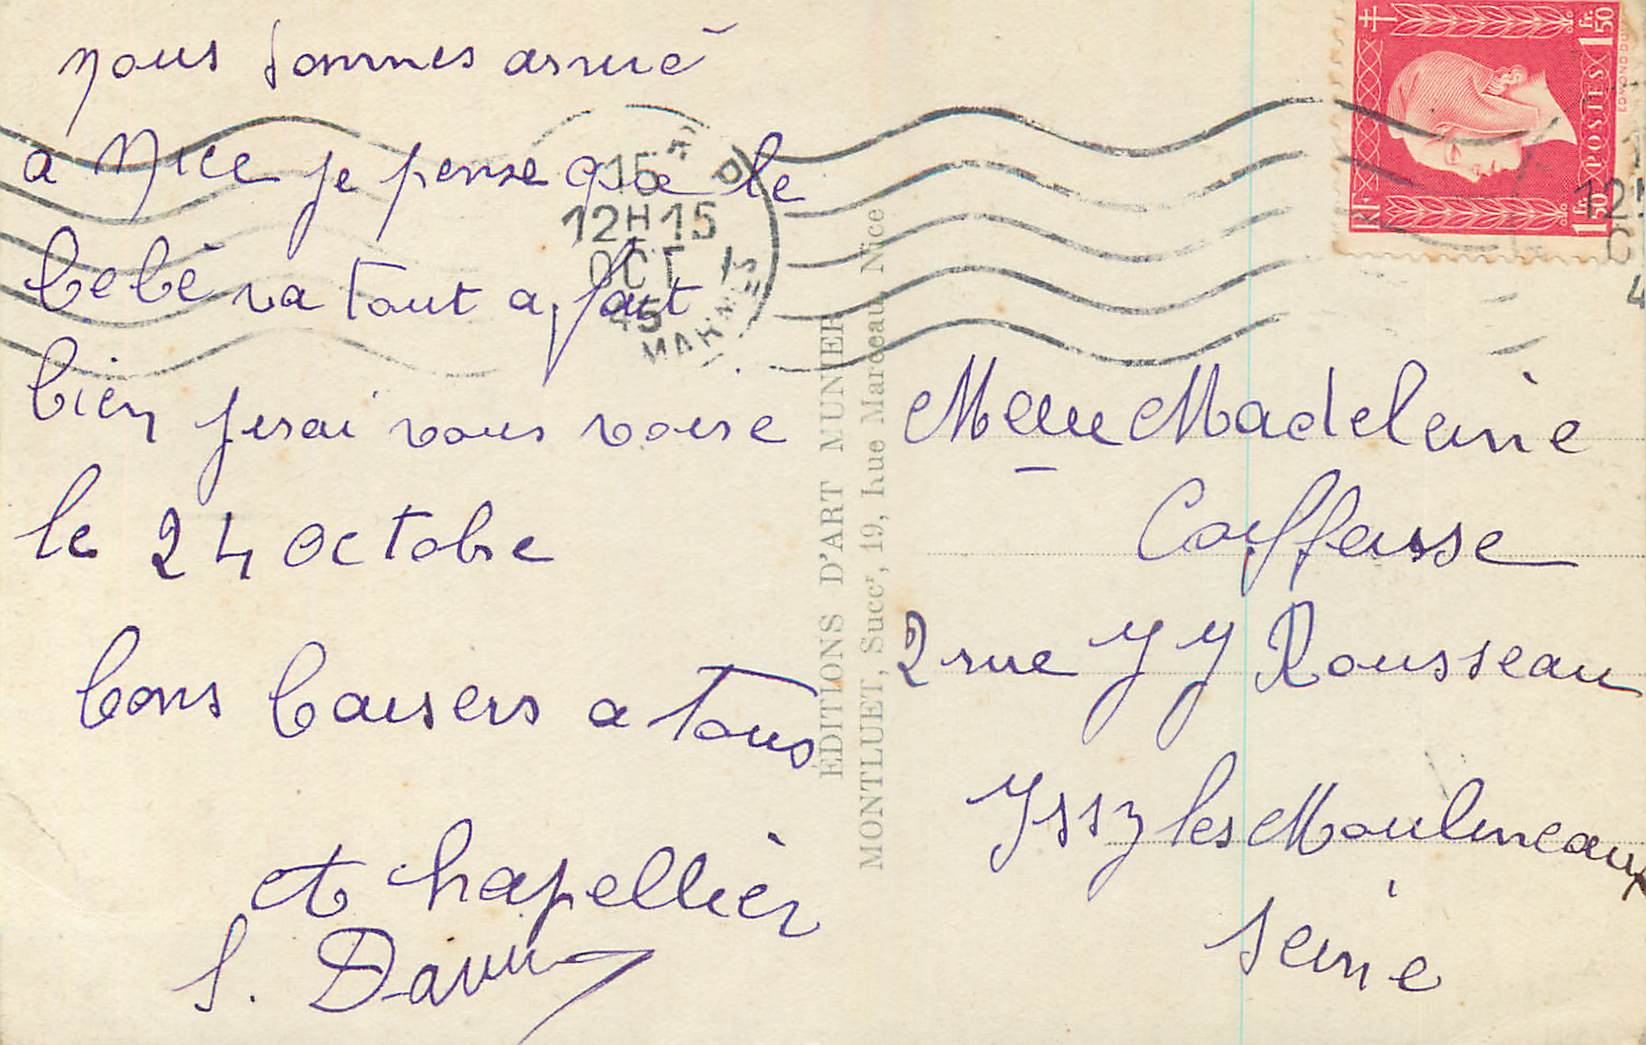 nous sommes arrivé
a Nice je pense que le
bebè va tout a fait
bien jirai vous voire
le 24 Octobre
bons baisers a tous
et Chapellier
S. Davin
15
12H15
OCT
45
MARNE
EDITIONS D'ART MUNIER
MONTLUET, Succr, 19, rue Marceau, Nice
1Fr.50
POSTES
1Fr.50
RF
Melle Madeleine
Coiffeusse
2 rue J J Rousseau
Issy les Moulineaux
Seine